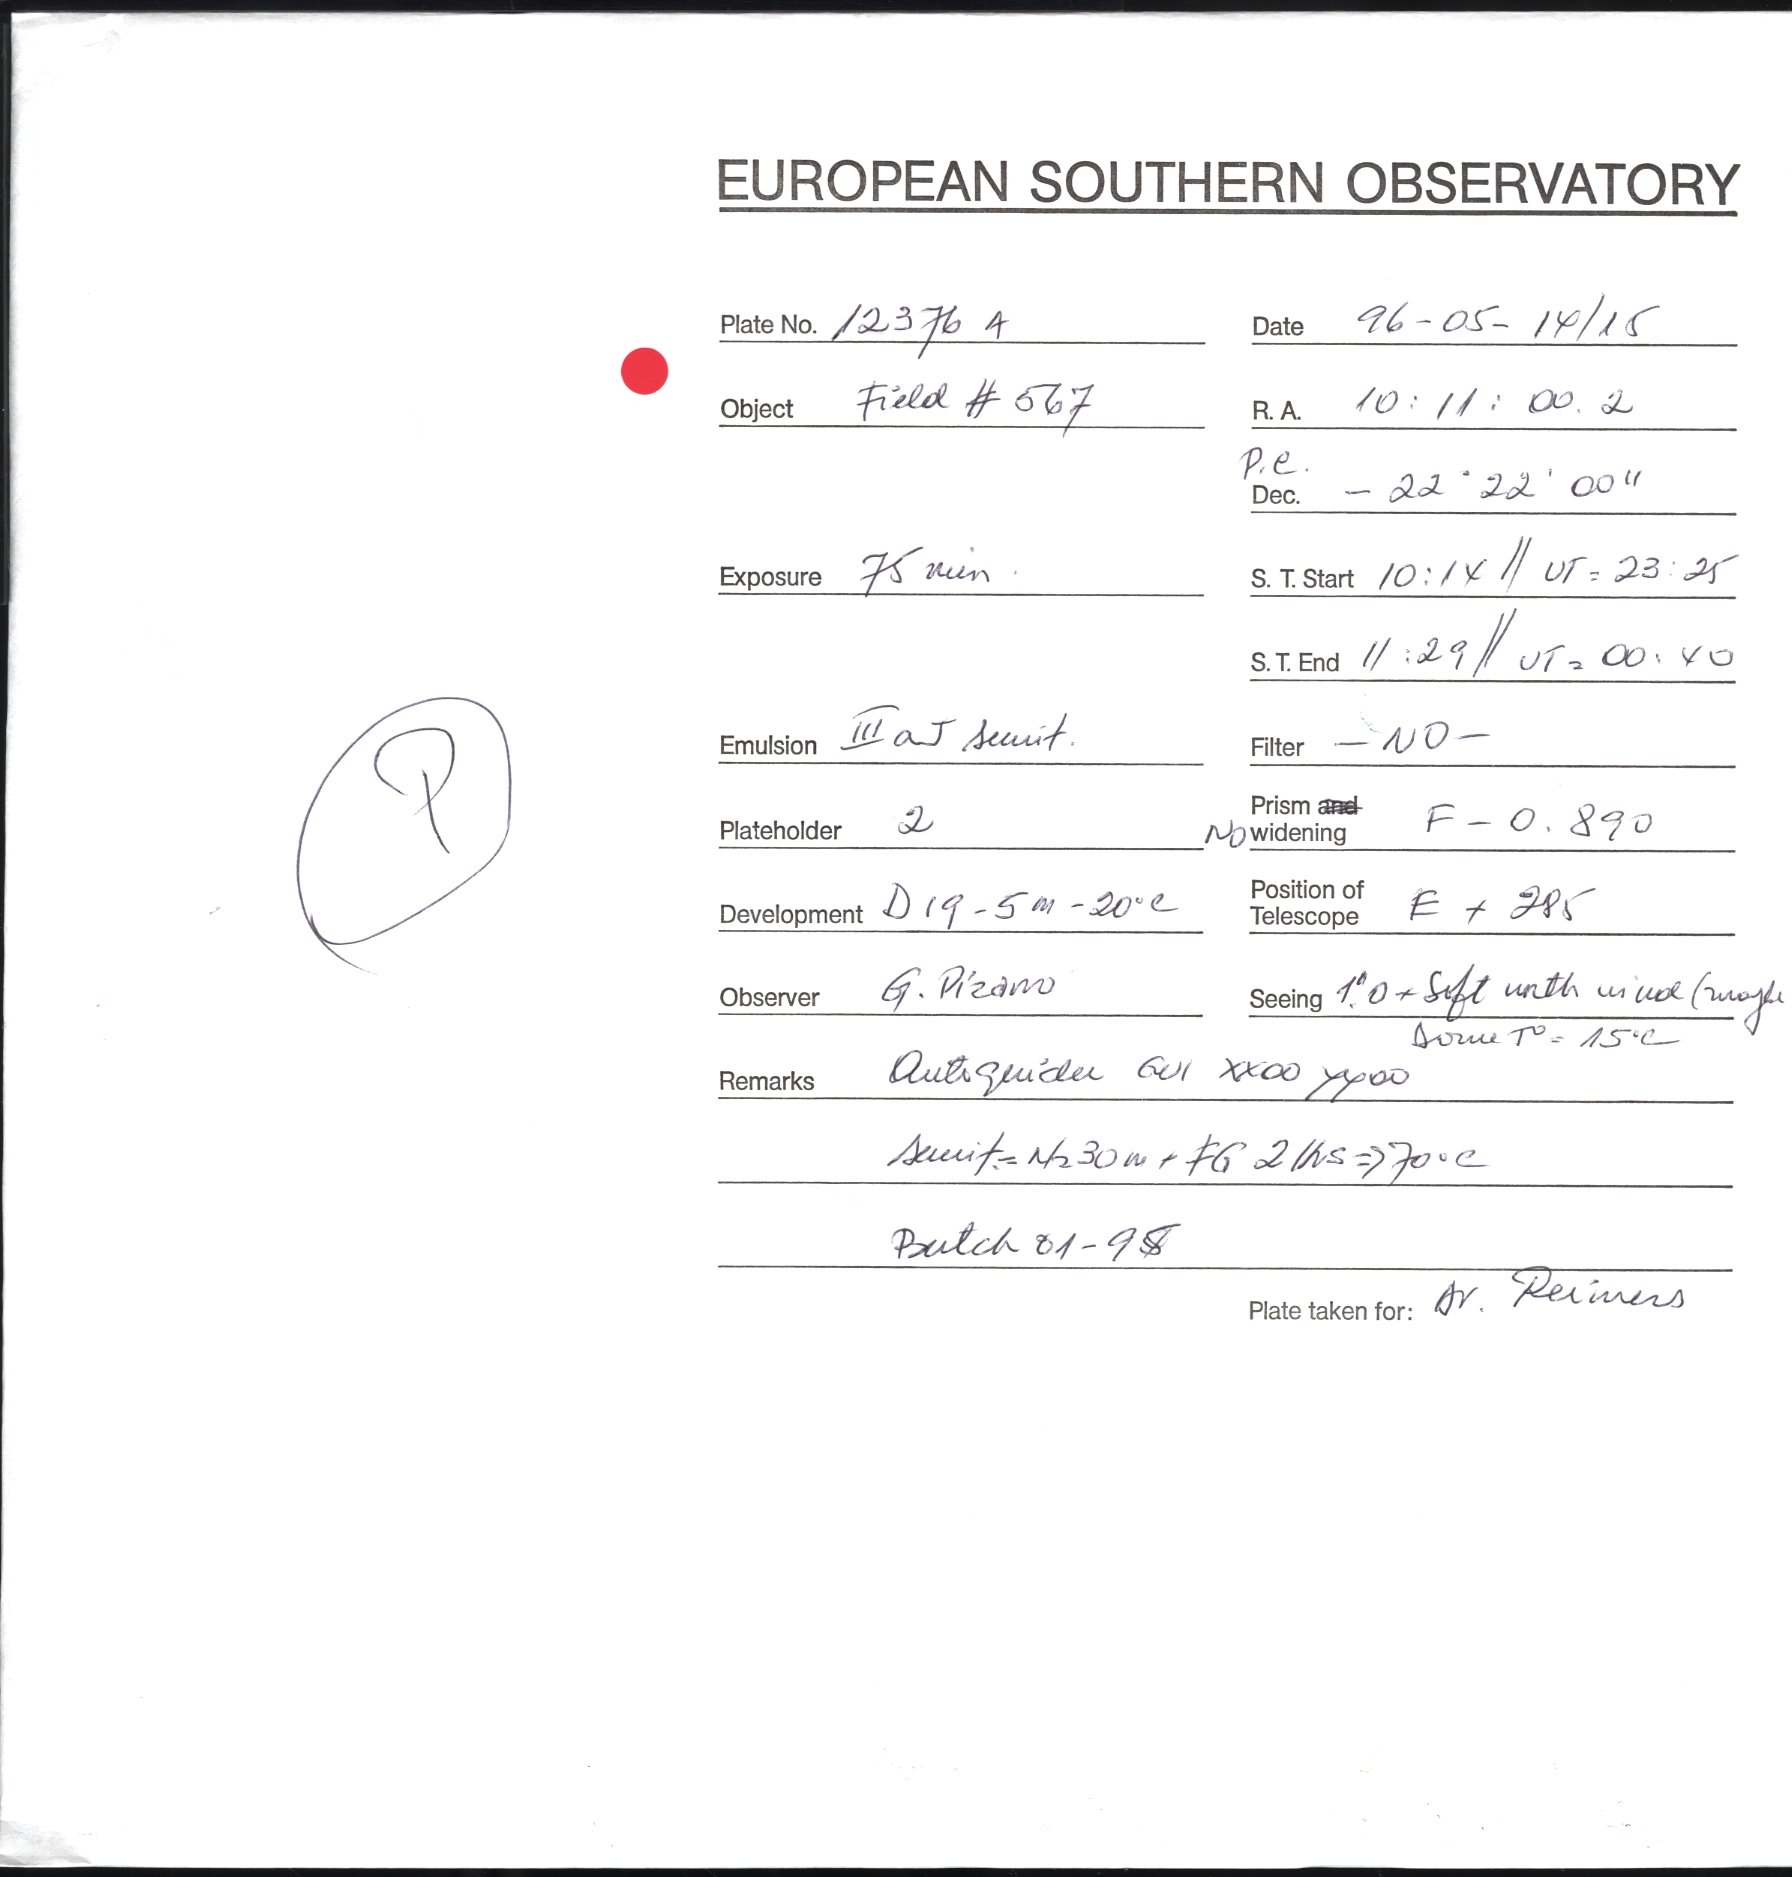 EUROPEAN SOUTHERN OBSERVATORY
Plate No. 12376 A
Date 96-05-14/15
Object Field # 567
R. A. 10 : 11 : 00. 2
P.e.
Dec. - 22° 22' 00"
Exposure 75 min.
S. T. Start 10:14 // UT = 23:25
S. T. End 11:29 // UT = 00:40
Emulsion III aJ sensit.
Filter - NO -
Plateholder 2
Prism and
No widening F - 0.890
Development D19 - 5m - 20°C
Position of
Telescope E + 285
Observer G. Pizarro
Seeing 1".0 + Soft north wind (maybe
Dome T° = 15°C
Remarks Autoguider XX00 YY00
Sensit = N2 30m + FG 2 hrs => 70°C
Batch 01-95
Plate taken for: Dr. Reimers
P